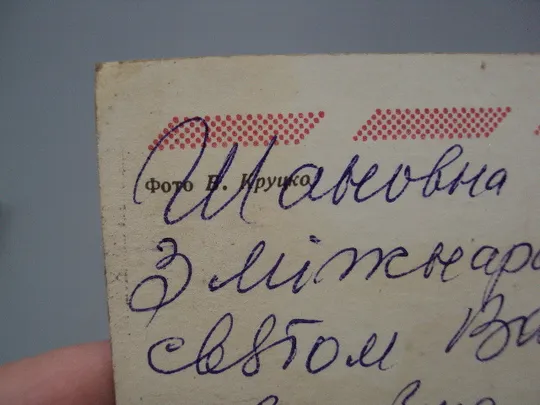 Фото В. Круцко
Шановна
З міжнаро
святом Ва